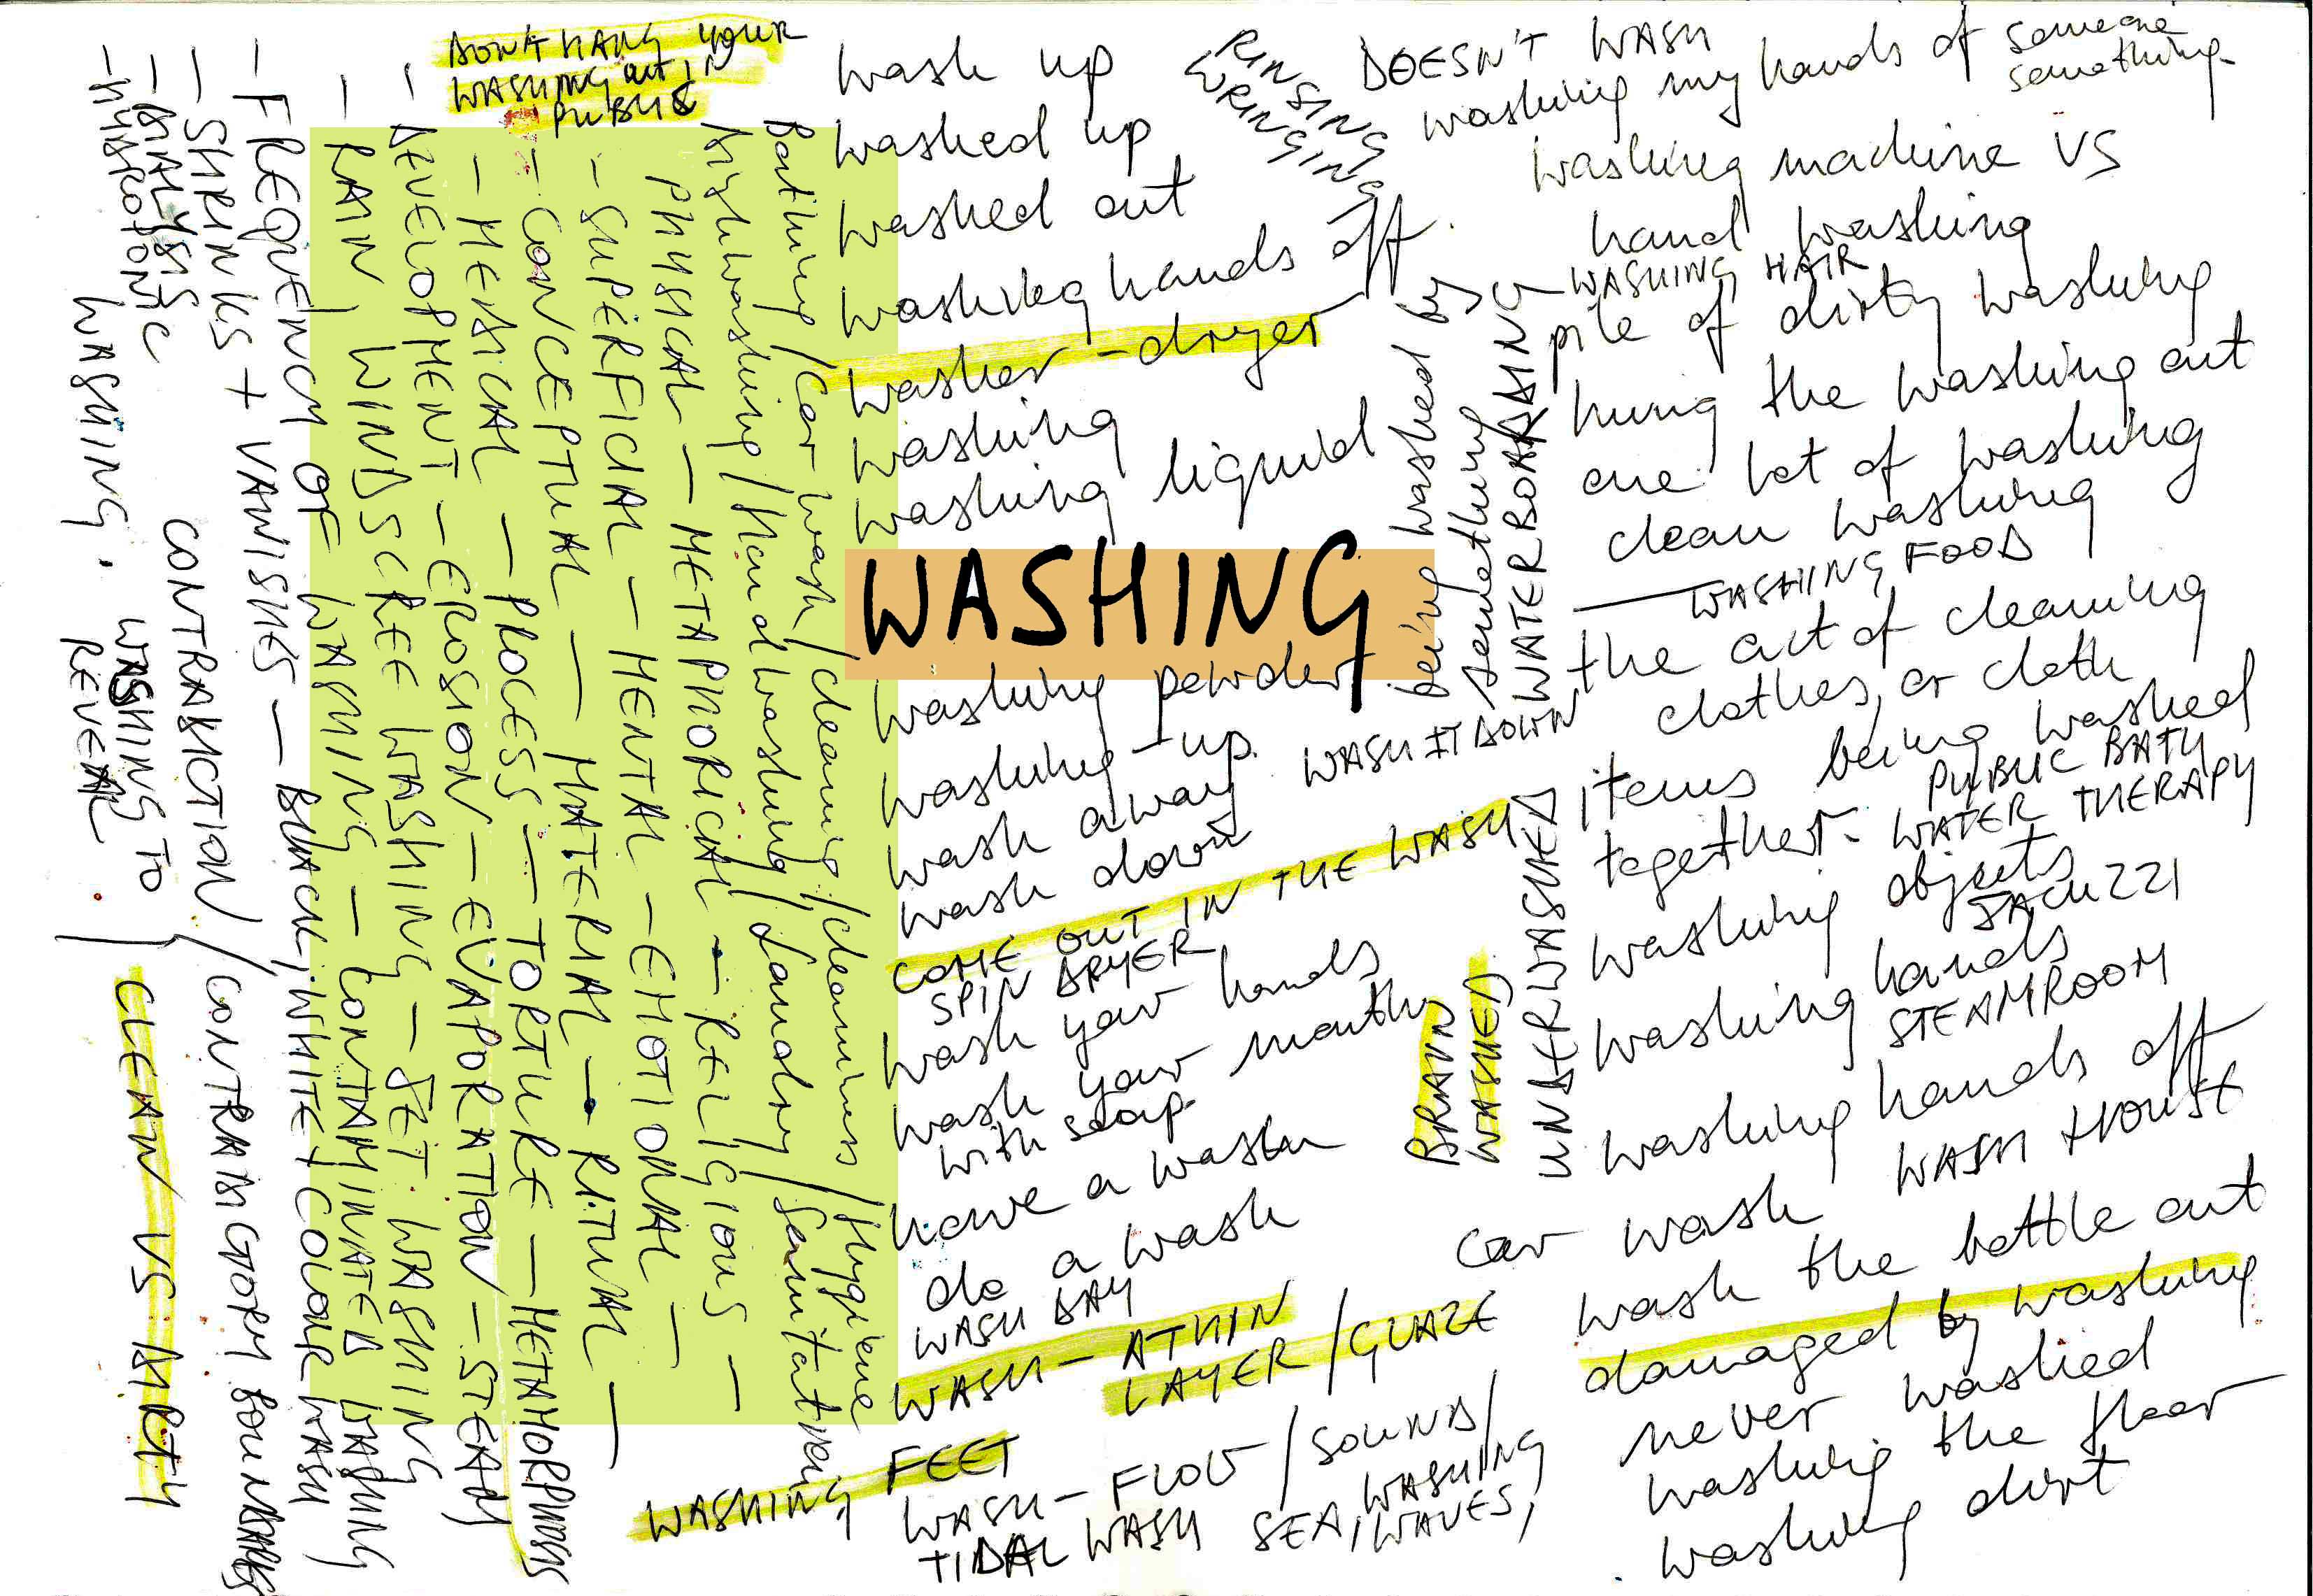 DON'T HANG YOUR
WASHING OUT IN
PUBLIC
wash up
washed up
washed out
washing hands off
washer-dryer
washing
washing liquid
WASHING
washing powder
washing-up
wash away
wash down
WASH IT DOWN
COME OUT IN THE WASH
SPIN DRYER
wash your hands
wash your mouth
with soap
have a wash
do a wash
WASH DAY
WASH - A THIN
LAYER / GLAZE
WASHING FEET
WASH - FLOW / SOUNDS /
TIDAL WASH SEA, WASHING
WAVES,
RINSING
WRINGING
DOESN'T WASH
washing my hands of someone
something
washing machine VS
hand washing
WASHING HAIR
pile of dirty washing
hung the washing out
one lot of washing
clean washing
WASHING FOOD
the act of cleaning
clothes, or cloth
items being washed
together.
PUBLIC BATH
WATER THERAPY
washing objects
JACUZZI
washing hands
STEAMROOM
washing hands off
WASH HOUSE
car wash
wash the bottle out
damaged by washing
never washed
washing the floor
washing dirt
being washed by
something
WATERBOARDING
UNDERWASHED
BRAIN
WASHED
Bathing / Car wash / cleaning / cleanliness / Hygiene
Dishwashing / Handwashing / Laundry / Sanitation
PHYSICAL - METAPHORICAL - RELIGIOUS -
- SUPERFICIAL - MENTAL - EMOTIONAL -
- CONCEPTUAL - MATERIAL - RITUAL -
- MEDICAL - PROCESS - TORTURE - METAMORPHOSIS
- DEVELOPMENT - EROSION - EVAPORATION - STEAM
- RAIN, WINDSCREE WASHING - JET WASHING
- FREQUENCY OF WASHING - CONTAMINATED WASHING
- SHRINKS + VANISHES - BLACK, WHITE + COLOUR WASH
- DIALYSIS
CONTRADICTION / CONTRADICTORY BOUNDARIES
- HYDROTONIC
WASHING, WASHING TO
REVEAL
CLEAN VS DIRTY